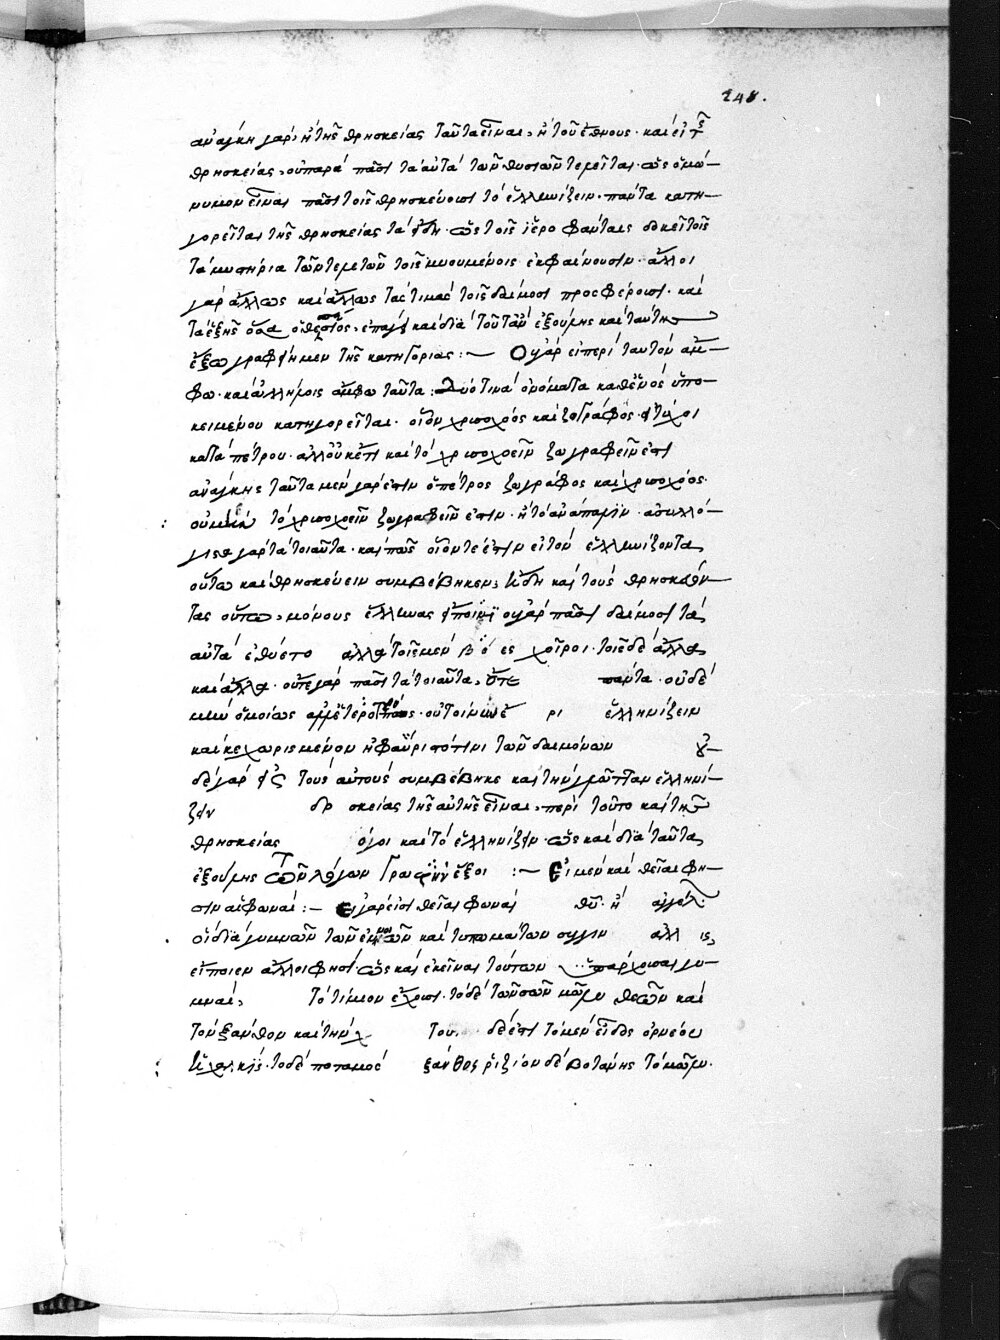 248.
ἀνάγκη γὰρ, ἢ τῆς θρησκείας ταῦτα εἶναι, ἢ τοῦ ἔθνους· καὶ εἰ τ
θρησκείας, οὐ παρὰ πᾶσι τὰ αὐτὰ τῶν θυσιῶν τελεῖται· ὡς ὁμώ-
νυμον εἶναι πᾶσι τοῖς θρησκεύουσι τὸ ἑλληνίζειν· πάντα κατη-
γορεῖται τῆς θρησκείας τὰ εἴδη· ὡς τοῖς ἱεροφάνταις δοκεῖ τοῖς
τὰ μυστήρια τῶν τελετῶν τοῖς μυουμένοις ἐκφαίνουσιν· ἄλλοι
γὰρ ἄλλως καὶ ἄλλως τὰς τιμὰς τοῖς δαίμοσι προσφέρουσι· καὶ
τὰ ἑξῆς ὅσα ὁ θεστος, ἐπάγει καὶ διὰ τοῦτο ἐξ οὗ μὴς καὶ ταύτης
ἔξω γραφείημεν τῆς κατηγορίας :~ Οὐ γὰρ εἰ περὶ ταυτὸν ἄμ-
φω· καὶ ἀλλήλοις ἄμφω ταῦτα : δύο τινὰ ὀνόματα καθ' ἑνὸς ὑπο-
κειμένου κατηγορεῖται· οἷον χρυσοχόος καὶ ζωγράφος· εἰ τύχοι
κατὰ πέτρου· ἀλλ' οὐκ ἔτι καὶ τὸ χρυσοχοεῖν ζωγραφεῖν ἐστι
ἀνάγκης ταῦτα μὲν γάρ ἐστιν ὁ πέτρος ζωγράφος καὶ χρυσοχόος·
οὐ μὴν τὸ χρυσοχοεῖν ζωγραφεῖν ἐστιν· ἢ τὸ ἀνάπαλιν· ἀσυλλό-
γιστα γὰρ τὰ τοιαῦτα· καὶ πῶς οἷόν τε ἐστιν εἰ τὸν ἑλληνίζοντα,
οὕτω καὶ θρησκεύειν συμβέβηκεν, ἤδη καὶ τοὺς θρησκεύον-
τας οὕτω, μόνους ἕλληνας εἴποιμι οὐ γὰρ πᾶσι δαίμοσι τὰ
αὐτὰ ἐθύετο ἀλλὰ τοῖς μὲν β ό ες χοῖροι· τοῖς δὲ ἄλλα,
καὶ ἄλλα· οὔτε γὰρ πᾶσι τὰ τοιαῦτα, οὔτε πάντα· οὐδὲ
μὴν ὁμοίως ἀμφέτεροι· οὔτοι ρι ἑλληνίζειν
καὶ κεχωρισμένον τινι τῶν δαιμόνων οὐ-
δὲ γὰρ εἰς τοὺς αὐτοὺς συμβέβηκε καὶ τὴν γλῶτταν ἑλληνί-
ζειν θρ σκείας τῆς αὐτῆς εἶναι, περὶ τοῦτο καὶ τῆς
θρησκείας όγοι καὶ τὸ ἑλληνίζειν· ὡς καὶ διὰ ταῦτα,
ἐξ οὗ μὴς τῶν λόγων γραφὴν ἔξοι :~ Εἰ μὲν καὶ θεῖαι φη-
σιν αἱ φωναὶ :~ Εἰ γάρ εἰσι θεῖαι φωναὶ θῦ· ἢ ἀγγέλ
οἱ διὰ γυμνῶν τῶν ἐννοιῶν καὶ τυπωμάτων σύγιν αλλ ις,
εἴποιεν ἀλλοι φησὶ ὡς καὶ ἐκεῖναι τούτων ὑπάρχουσαι γυ-
μναὶ, τὸ τίμιον ἔχουσι· τὸ δὲ τῶν σῶν μῶλυ θεῶν καὶ
τὸν ξάνθον καὶ τὴν χ του. δέ ἐστι τὸ μὲν εἶδος ὀρνέου
ἡ χαλκὶς· τὸ δὲ ποταμὸς ξάνθος ῥιζίον δὲ βοτάνης τὸ μῶλυ.